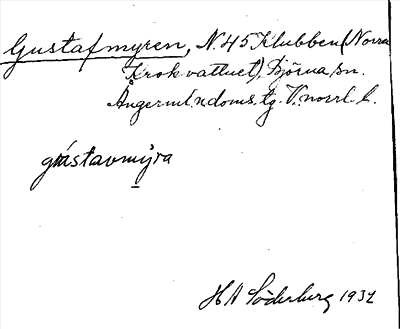 Gustafmyren, N. 45 Klubben (Norra
Krokvattnet), Björna sn.
Ångerml. n. doms. tg. V:norrl. l.
gústavmýra
H A Söderberg 1932